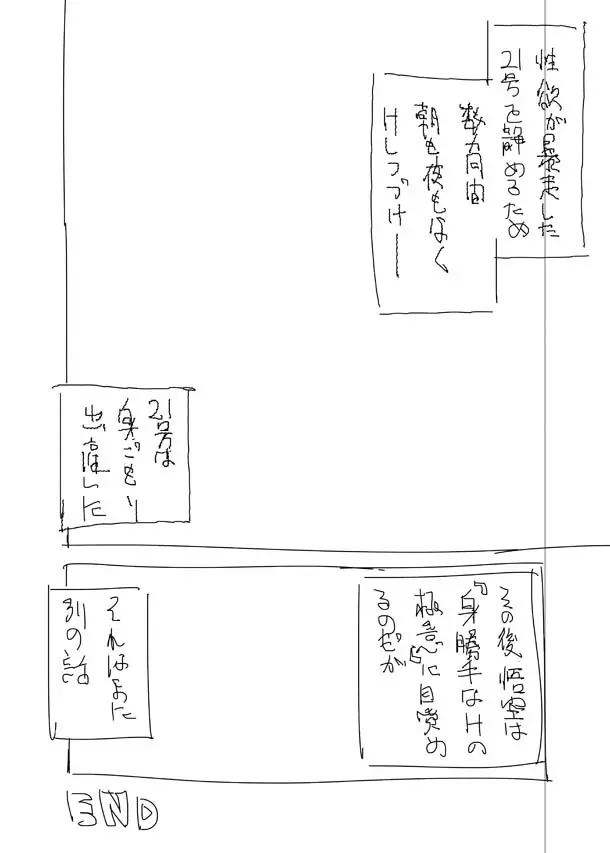 性欲が暴走した
21号を静めるため
数カ月間
朝も夜もなく
Hしつづけ──
21号は
身ごもり
出産した
その後、悟空は
『身勝手なHの
極意』に目覚め
るのだが
それはまた
別の話
END